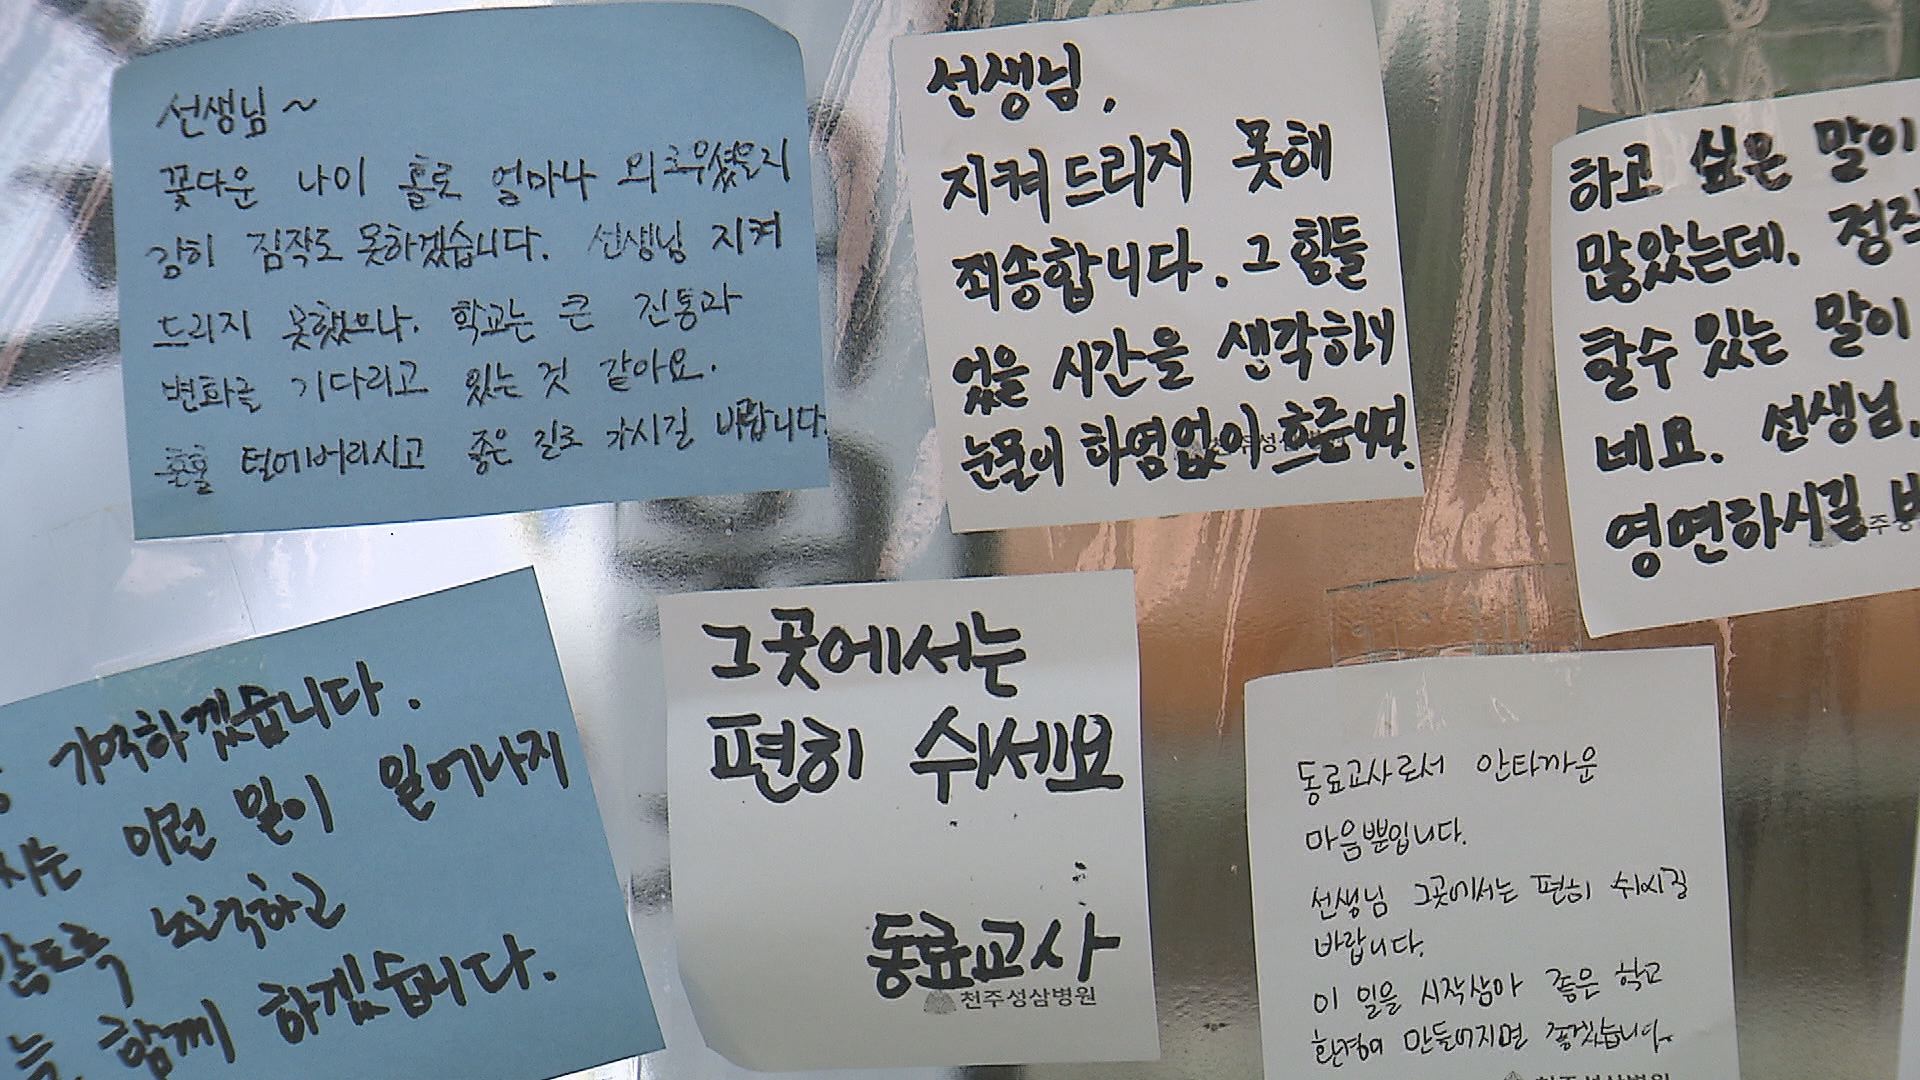 선생님~
꽃다운 나이 홀로 얼마나 외로우셨을지
감히 짐작도 못하겠습니다. 선생님 지켜
드리지 못했으나. 학교는 큰 진통과
변화를 기다리고 있는 것 같아요.
훌훌 털어버리시고 좋은 길로 가시길 바랍니다.
선생님,
지켜드리지 못해
죄송합니다. 그 힘들
었을 시간을 생각하네
눈물이 하염없이 흐릅니다.
하고 싶은 말이
많았는데. 정작
할수 있는 말이
네요. 선생님,
영면하시길
기억하겠습니다.
이런 일이 일어나지
않도록 노력하고
함께 하겠습니다.
그곳에서는
편히 쉬세요
동료교사
천주성삼병원
동료교사로서 안타까운
마음뿐입니다.
선생님 그곳에서는 편히 쉬시길
바랍니다.
이 일을 시작삼아 좋은 학교
환경이 만들어지면 좋겠습니다.
천주성삼병원